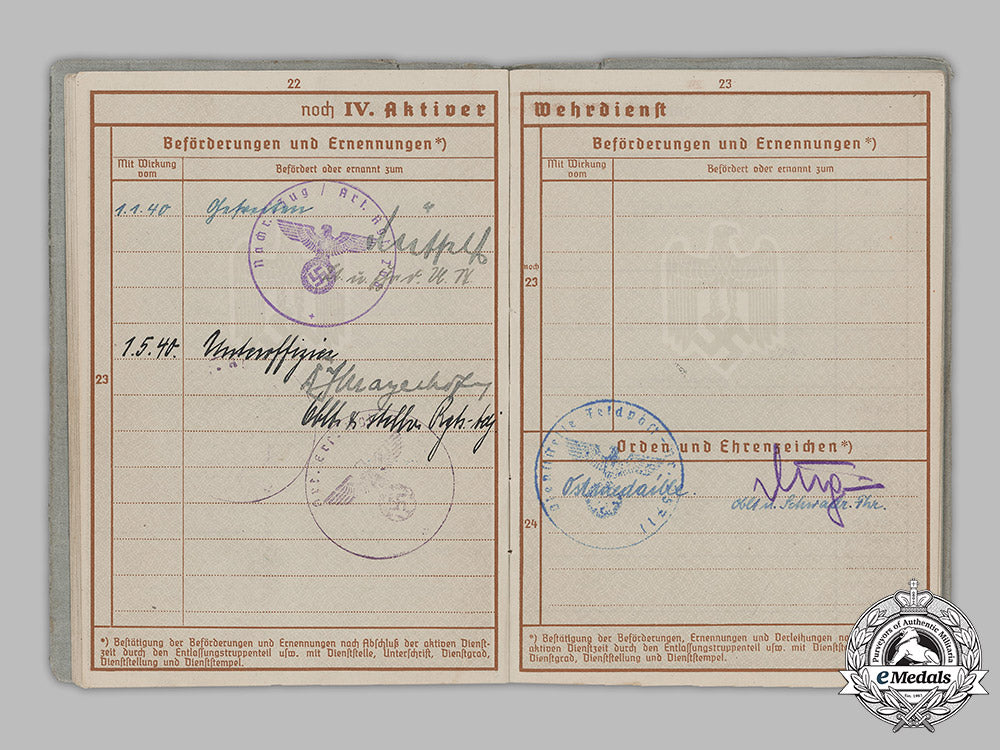 22
noch IV. Aktiver
Beförderungen und Ernennungen*)
Mit Wirkung
vom
Befördert oder ernannt zum
1.1.40 Gefreiten
1.5.40. Unteroffizier
23
*) Bestätigung der Beförderungen und Ernennungen nach Abschluß der aktiven Dienst-
zeit durch den Entlassungstruppenteil usw. mit Dienststelle, Unterschrift, Dienstgrad,
Dienststellung und Dienststempel.
23
Wehrdienst
Beförderungen und Ernennungen*)
Mit Wirkung
vom
Befördert oder ernannt zum
noch
23
Orden und Ehrenzeichen*)
Dienststelle Feldpost
Ostmedaille.
Oblt u. Schwadr. Fhr.
24
*) Bestätigung der Beförderungen, Ernennungen und Verleihungen
aktiven Dienstzeit durch den Entlassungstruppenteil usw. mit Dienststelle
Dienstgrad, Dienststellung und Dienststempel.
Purveyors of Authentic Militaria
eMedals